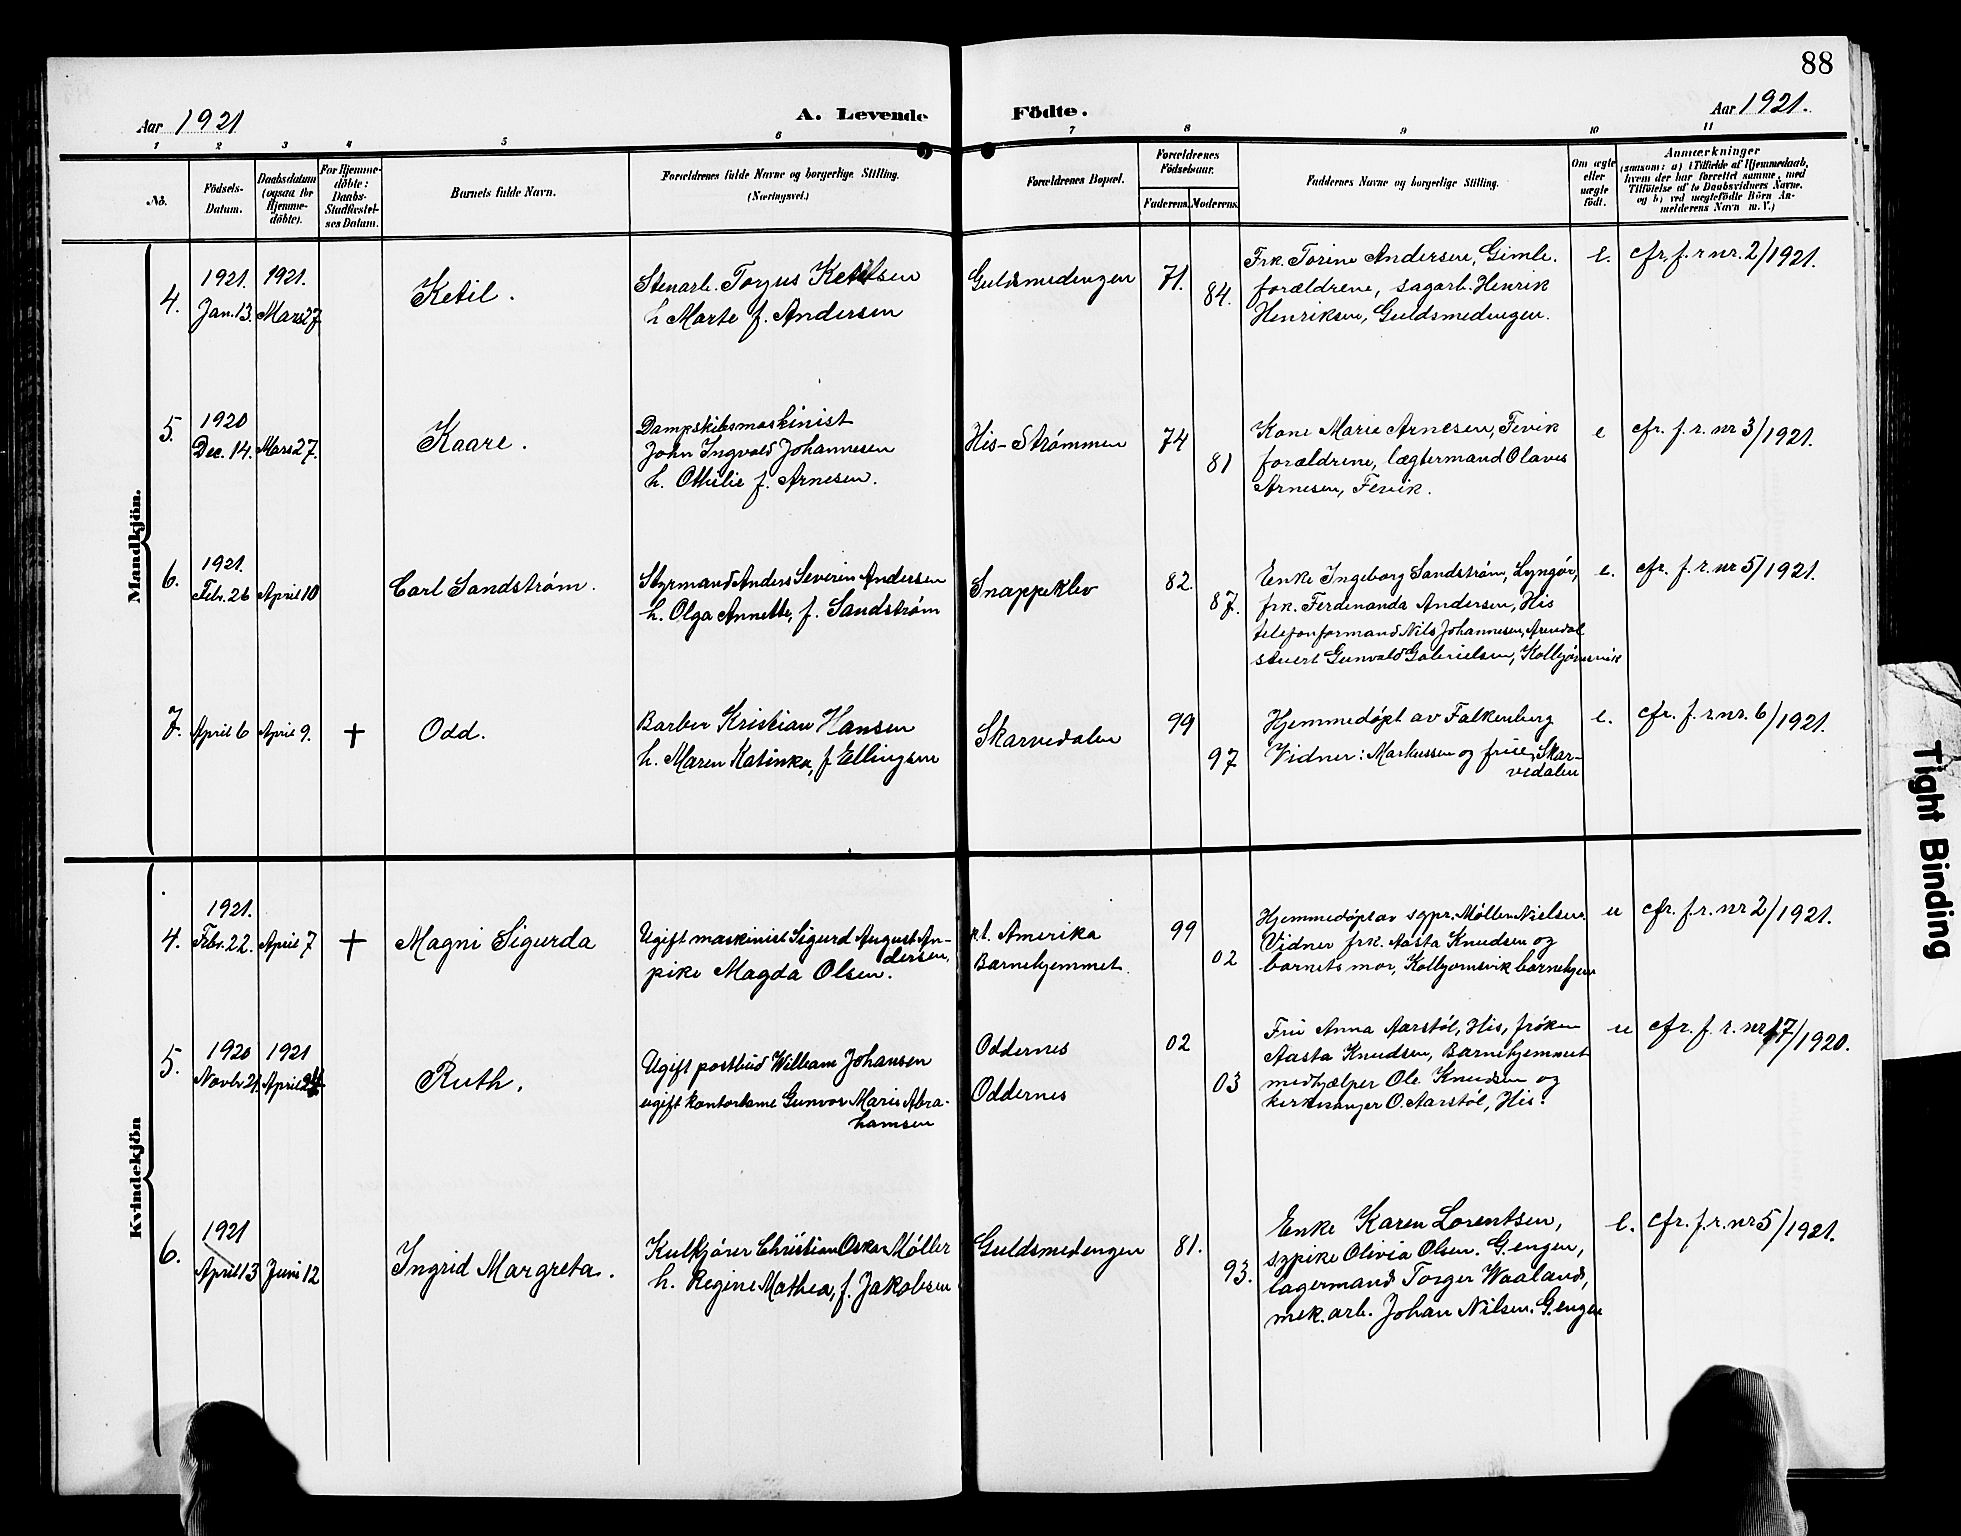 88
Aar 1921
A. Levende Födte.
Aar 1921.
1 2 3 4 5 6 7 8 9 10 11
No.
Födsels-Datum.
Daabsdatum (ogsaa for Hjemmedöbte).
For Hjemmedöbte: Daabs-Stadfæstelses Datum.
Barnets fulde Navn.
Forældrenes fulde Navne og borgerlige Stilling.
(Næringsvei.)
Forældrenes Bopæl.
Forældrenes Födselsaar.
Faderens. Moderens.
Faddernes Navne og borgerlige Stilling.
Om ægte eller uægte født.
Anmærkninger
(saasom: a) i Tilfælde af Hjemmedaab, hvem der har forrettet samme, med Tilföielse af to Daabsvidners Navne, og b) ved uægtefödte Börn Anmelderens Navn m. V.)
Mandkjön.
4.
1921 Jan. 13.
1921. Mars 27
Ketil.
Stenarb. Torjus Ketilsen
h. Marte f. Andersen
Guldsmedengen
71.
84.
Frk. Torine Andersen, Gimle.
forældrene, sagarb. Henrik
Henriksen, Guldsmedengen.
e.
cfr. f. r nr. 2/1921.
5.
1920 Dec. 14.
Mars 27.
Kaare.
Dampskibsmaskinist
John Ingvald Johannesen
h. Othilie f. Arnesen.
His-Strømmen
74
81
Kone Marie Arnesen, Fevik
forældrene, lægtermand Olaves
Arnesen, Fevik.
e
cfr. f. r. nr 3/1921.
6.
1921. Febr. 26
April 10
Carl Sandstrøm.
Styrmand Anders Severin Andersen
h. Olga Annette, f. Sandstrøm
Snappeklev
82.
87.
Enke Ingeborg Sandstrøm, Lyngør,
frk. Ferdinanda Andersen, His
telefonformand Nils Johannesen, Arendal
stuert Gunvald Gabrielsen, Kolbjørnsvik
e.
cfr. f. r. nr 5/1921.
7.
April 6
April 9.
+
Odd.
Barber Kristian Hansen
h. Maren Katinka, f. Ellingsen
Skarvedalen
99
97
Hjemmedøpt av Falkenberg
Vidner: Markussen og frue, Skar-
vedalen
e.
cfr. f. r nr. 6/1921.
Kvindekjön
4.
1921. Febr. 22.
April 7
+
Magni Sigurda
Ugift maskinist Sigurd August An-
dersen,
pike Magda Olsen.
p.t. Amerika
Barnehjemmet.
99
02
Hjemmedøpt av sgpr. Møller Nielsen.
Vidner frk. Aasta Knudsen og
barnets mor, Kolbjornsvik barnehjem
u
cfr. f. r. nr 2/1921.
5.
1920 Novbr 21.
1921 April 24
Ruth.
Ugift postbud William Johansen
ugift kontordame Gunvor Marie Abra-
hamsen
Oddernes
Oddernes
02
03
Fru Anna Aarstöl, His, frøken
Aasta Knudsen, Barnehjemmet
medhjælper Ole Knudsen og
kirkesanger O. Aarstöl, His.
u
cfr. f. r. nr 17/1920.
6.
1921 April 13
Juni 12
Ingrid Margreta.
Kulkjører Christian Oskar Møller
h. Regine Mathea, f. Jakobsen
Guldsmedengen
81.
93.
Enke Karen Lorentsen,
sypike Olivia Olsen. G.engen,
lagermand Torger Waaland,
mek. arb. Johan Nilsen. G.engen
e.
cfr. f. r. nr 5/1921.
Tight Binding